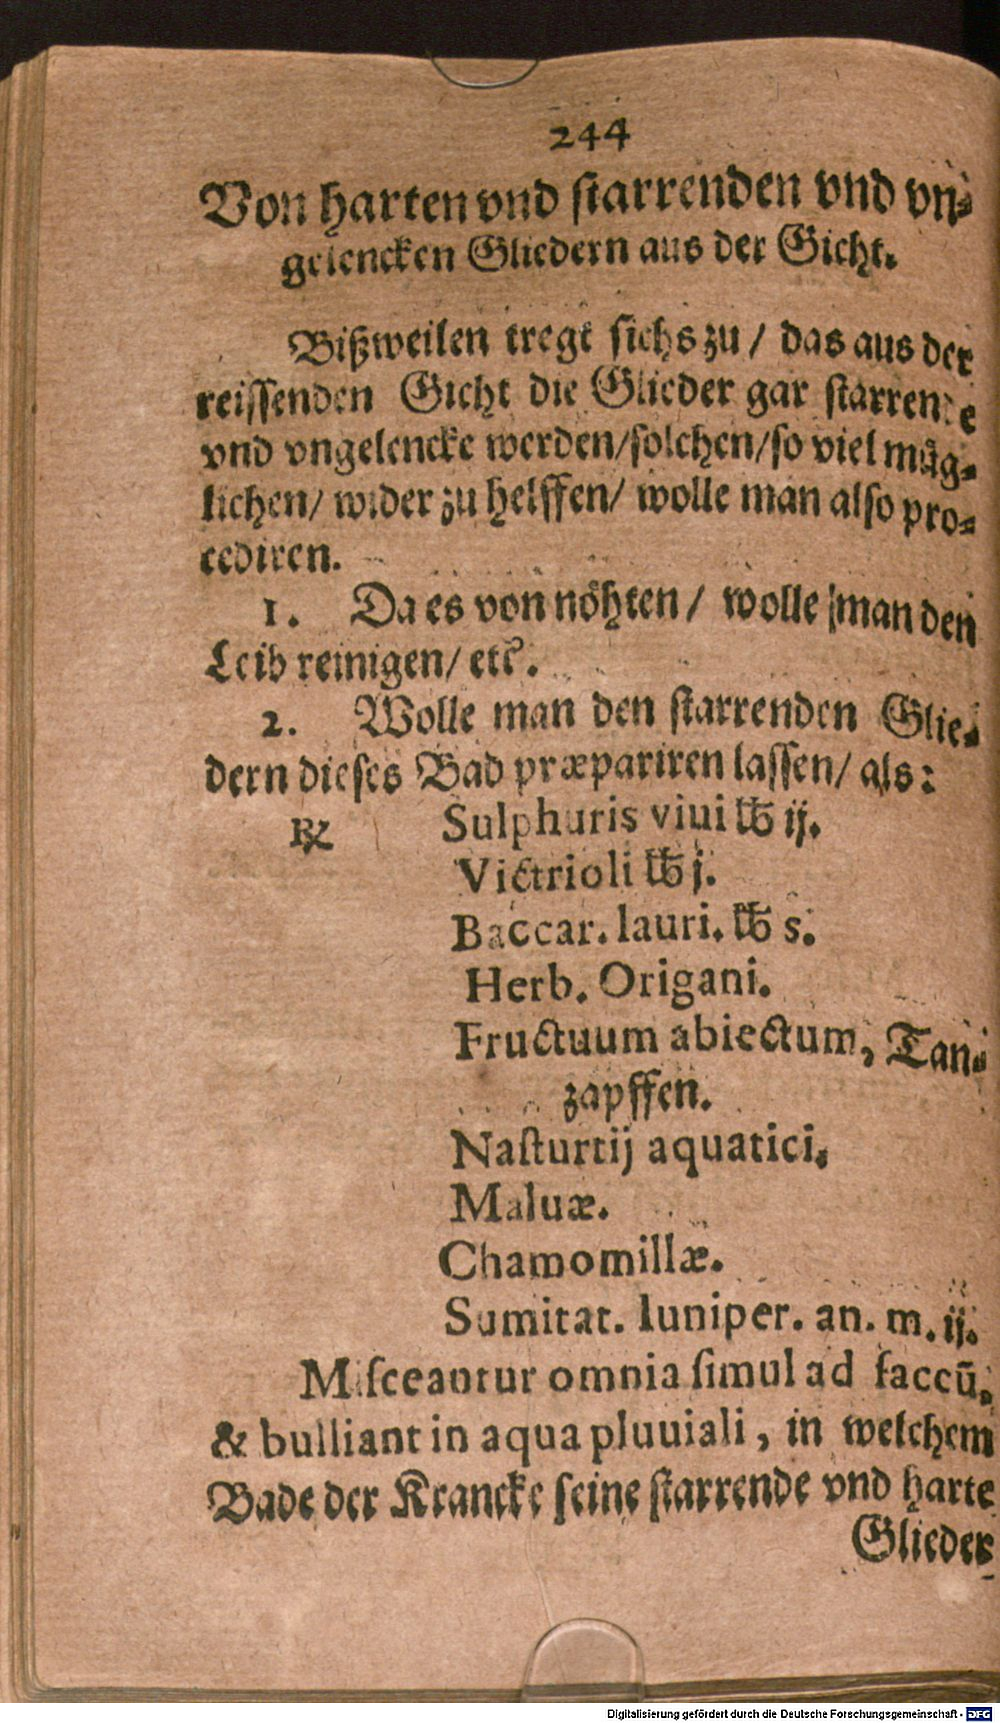 244
Von harten vnd starrenden vnd vn-
gelencken Gliedern aus der Gicht.
Bißweilen tregt sichs zu / das aus der
reissenden Gicht die Glieder gar starrende
vnd vngelencke werden/solchen/so viel müg-
lichen/ wider zu helffen/ wolle man also pro-
cediren.
1. Da es von nöhten / wolle man den
Leib reinigen/ etc.
2. Wolle man den starrenden Glie-
dern dieses Bad præpariren lassen/ als:
℞ Sulphuris viui ℔ ij.
Victrioli ℔ j.
Baccar. lauri. ℔ s.
Herb. Origani.
Fructuum abiectum, Tan-
zapffen.
Nasturtij aquatici.
Maluæ.
Chamomillæ.
Sumitat. Iuniper. an. m. ij.
Misceantur omnia simul ad saccū,
& bulliant in aqua pluuiali, in welchem
Bade der Krancke seine starrende vnd harte
Glieder
Digitalisierung gefördert durch die Deutsche Forschungsgemeinschaft - DFG